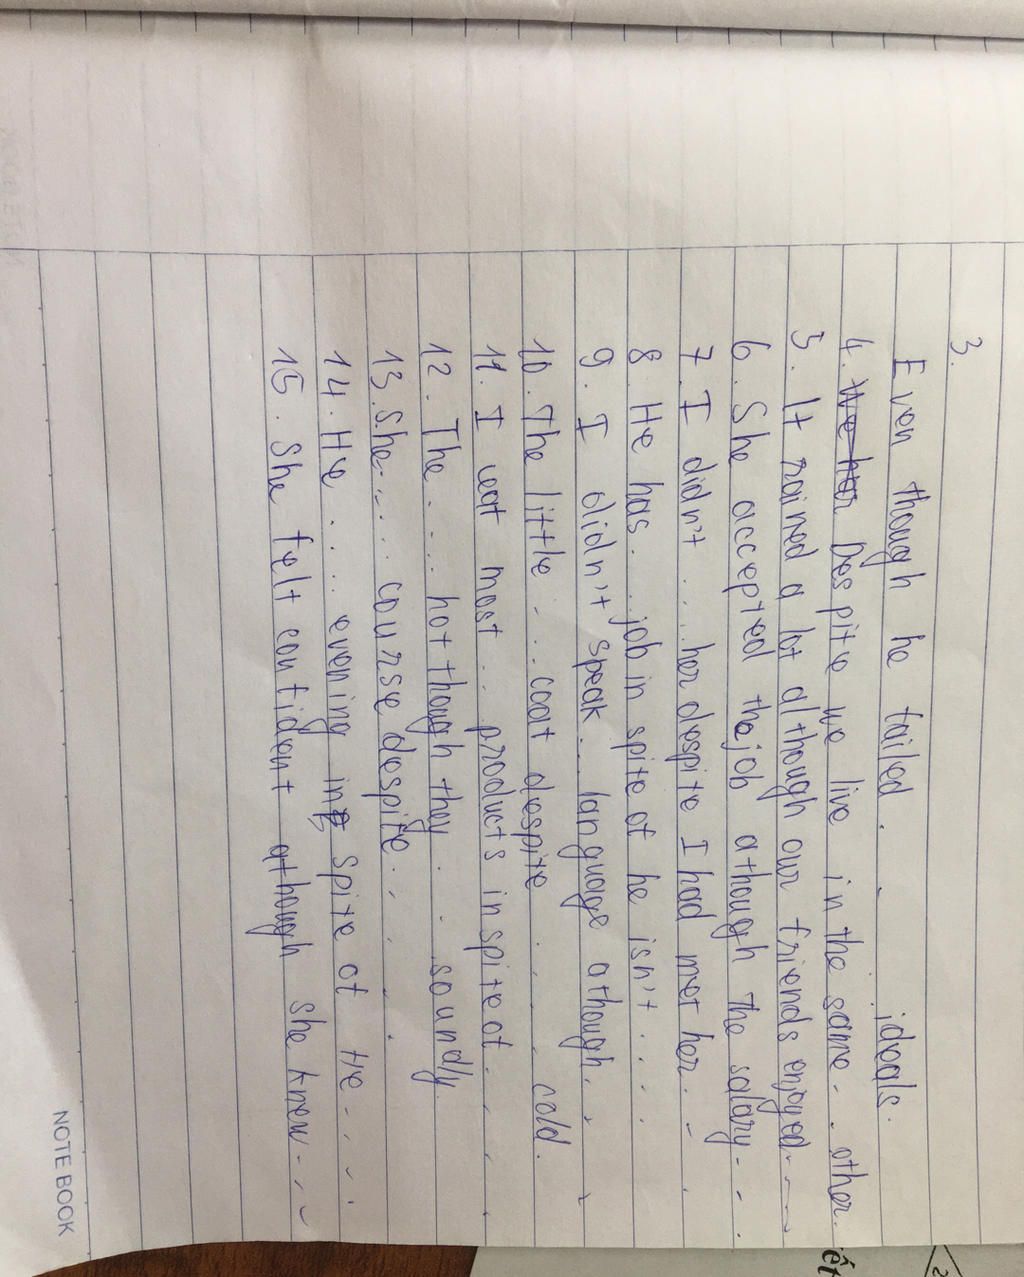 3.
Even though he failed . . ideals.
4. We hav Despite we live in the same . . other.
5. It rained a lot although our friends enjoyed - - -
6. She accepted the job athough the salary - - .
7. I didn't . . . her despite I had met her . - .
8. He has . . job in spite of he isn't . . . .
9. I didn't speak . . . language athough . . .
10. The little . . . coat despite . . . . cold.
11. I eat most . . . products in spite of . . . .
12. The . . . . hot though they . . soundly.
13. She . . . . course despite . . . . .
14. He . . . . evening in spite of He . . . .
15. She felt confident athough she knew . . .
NOTE BOOK
ết
2